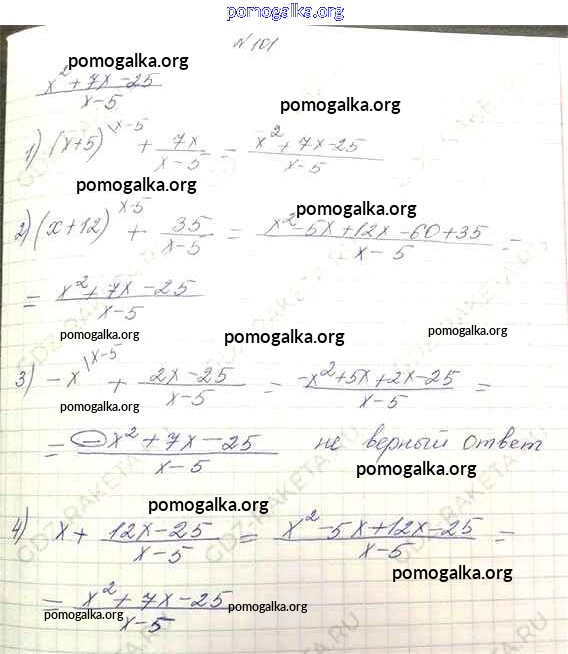 pomogalka.org
№ 101
pomogalka.org
x² + 7x - 25 / x - 5
pomogalka.org
1) (x+5) \x-5 + 7x / x-5 = x² + 7x - 25 / x-5
pomogalka.org
pomogalka.org
2) (x+12) x-5 + 35 / x-5 = x² - 5x + 12x - 60 + 35 / x-5 =
= x² + 7x - 25 / x-5
pomogalka.org
pomogalka.org
pomogalka.org
3) - x \x-5 + 2x - 25 / x-5 = -x² + 5x + 2x - 25 / x-5 =
pomogalka.org
= - x² + 7x - 25 / x-5 не верный ответ
pomogalka.org
pomogalka.org
4) x + 12x - 25 / x-5 = x² - 5x + 12x - 25 / x-5 =
pomogalka.org
= x² + 7x - 25 / x-5
pomogalka.org
pomogalka.org
GDZ-RAKETA.RU